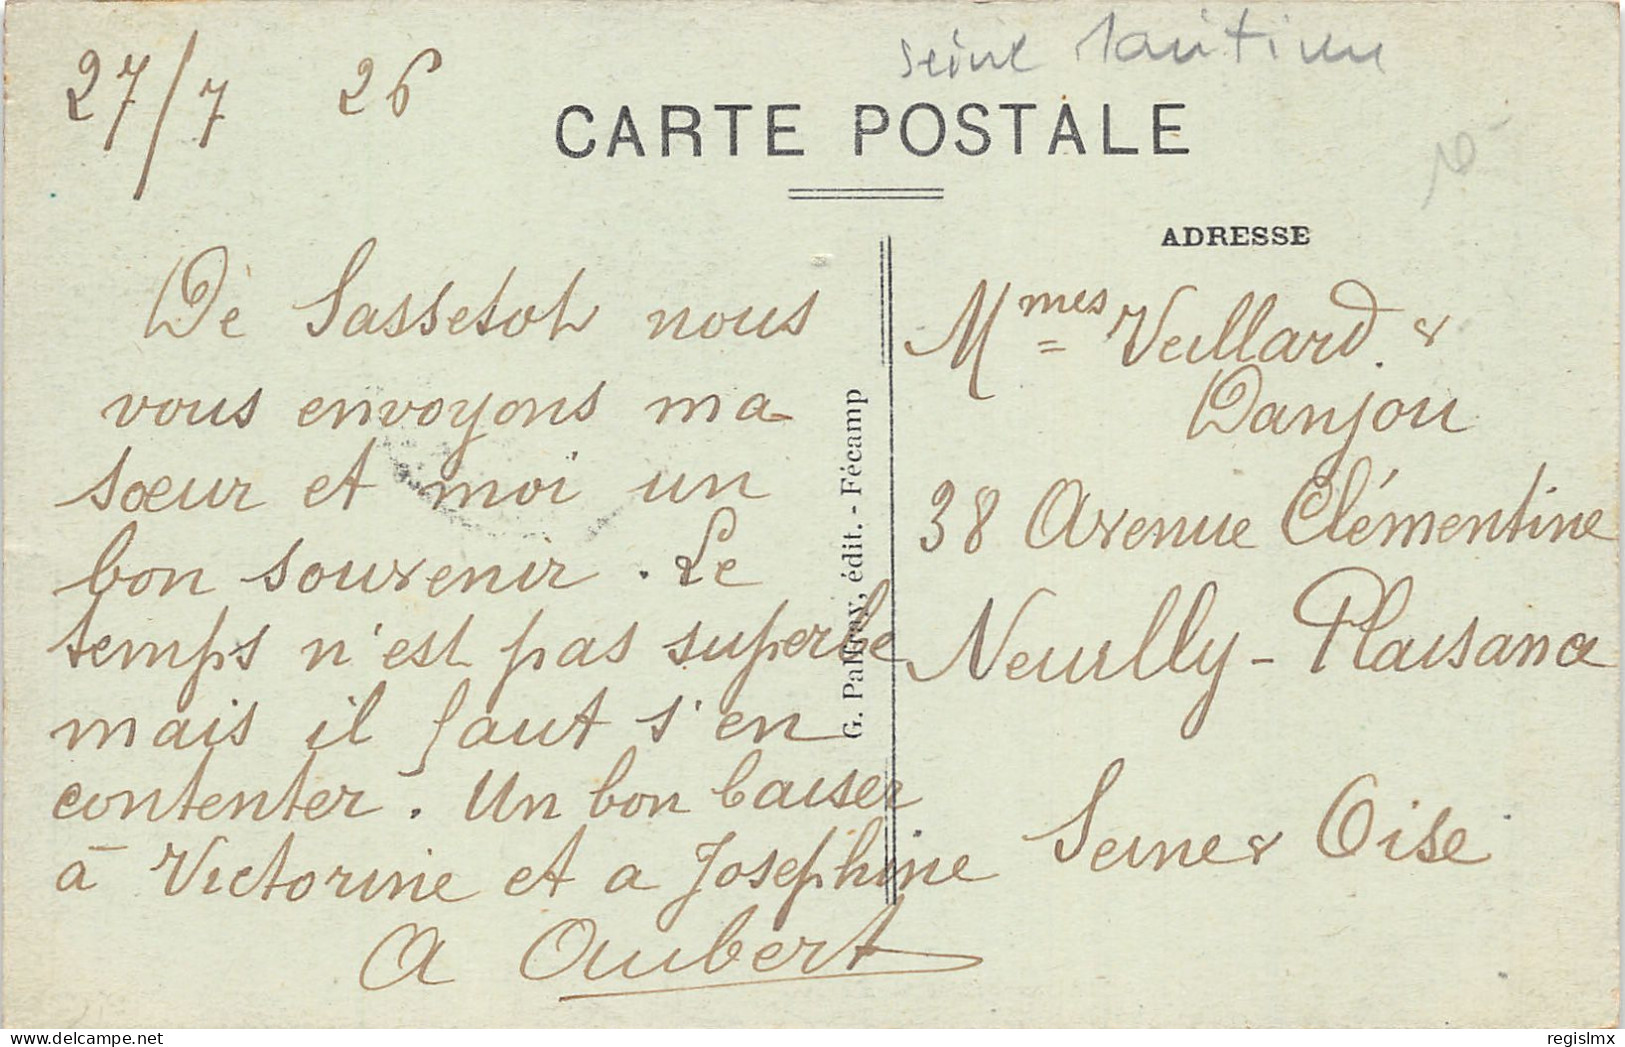 27/7 26
CARTE POSTALE
De Sassetot nous
vous envoyons ma
sœur et moi un
bon souvenir. Le
temps n'est pas superbe
mais il faut s'en
contenter. Un bon baiser
à Victorine et a Joséphine
A Aubert
G. Pallfray, édit. - Fécamp
ADRESSE
Mmes Veillard &
Danjou
38 Avenue Clémentine
Neuilly-Plaisance
Seine & Oise
seine
www.delcampe.net
regislmx